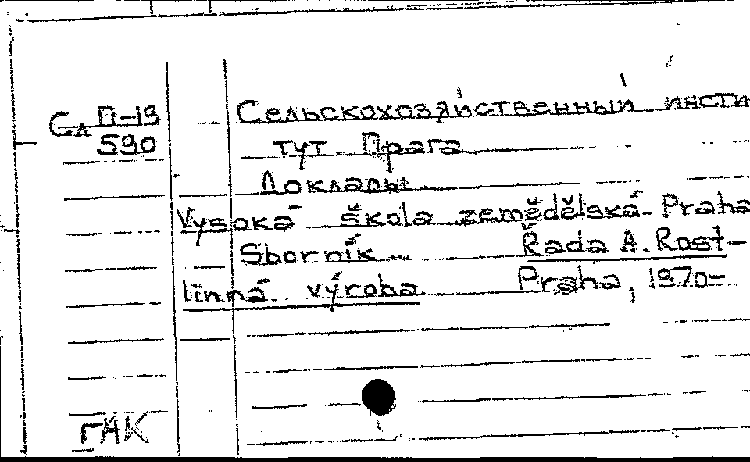 Сл П-19
590
Сельскохозяйственный инсти
тут. Прага
Доклады
Vysoká škola zemědělská. Praha
Sborník Řada A. Rost-
linná výroba Praha, 1970-
ГАК